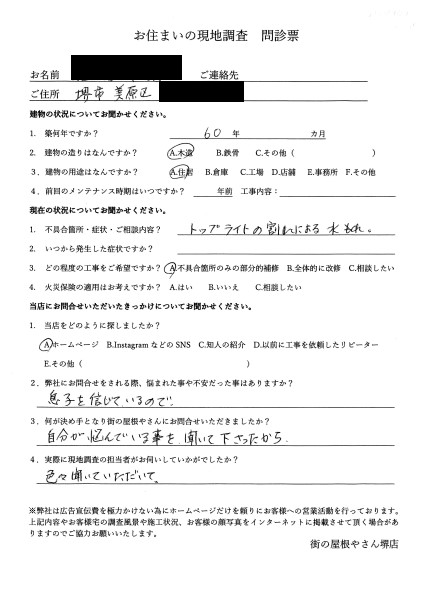 お住まいの現地調査　問診票
お名前　ご連絡先
ご住所　堺市 美原区
建物の状況についてお聞かせください。
1. 築何年ですか？　60 年　カ月
2. 建物の造りはなんですか？　A.木造　B.鉄骨　C.その他（　）
3. 建物の用途はなんですか？　A.住居　B.倉庫　C.工場　D.店舗　E.事務所　F.その他
4. 前回のメンテナンス時期はいつですか？　年前　工事内容：
現在の状況についてお聞かせください。
1. 不具合箇所・症状・ご相談内容？　トップライトの割れによる水もれ。
2. いつから発生した症状ですか？
3. どの程度の工事をご希望ですか？　A.不具合箇所のみの部分的補修　B.全体的に改修　C.相談したい
4. 火災保険の適用はお考えですか？ A.はい　B.いいえ　C.相談したい
当店にお問合せいただいたきっかけについてお聞かせください。
1. 当店をどのように探しましたか？
A.ホームページ　B.Instagram などの SNS　C.知人の紹介　D.以前に工事を依頼したリピーター
E.その他（　）
2. 弊社にお問合せをされる際、悩まれた事や不安だった事はありますか？
息子を信じているので。
3. 何が決め手となり街の屋根やさんにお問合せいただきましたか？
自分が悩んでいる事を聞いて下さったから。
4. 実際に現地調査の担当者がお伺いしていかがでしたか？
色々聞いていただいて。
※弊社は広告宣伝費を極力かけない為にホームページだけを頼りにお客様への営業活動を行っております。
上記内容やお客様宅の調査風景や施工状況、お客様の顔写真をインターネットに掲載させて頂く場合があ
りますのでご協力お願いいたします。
街の屋根やさん堺店